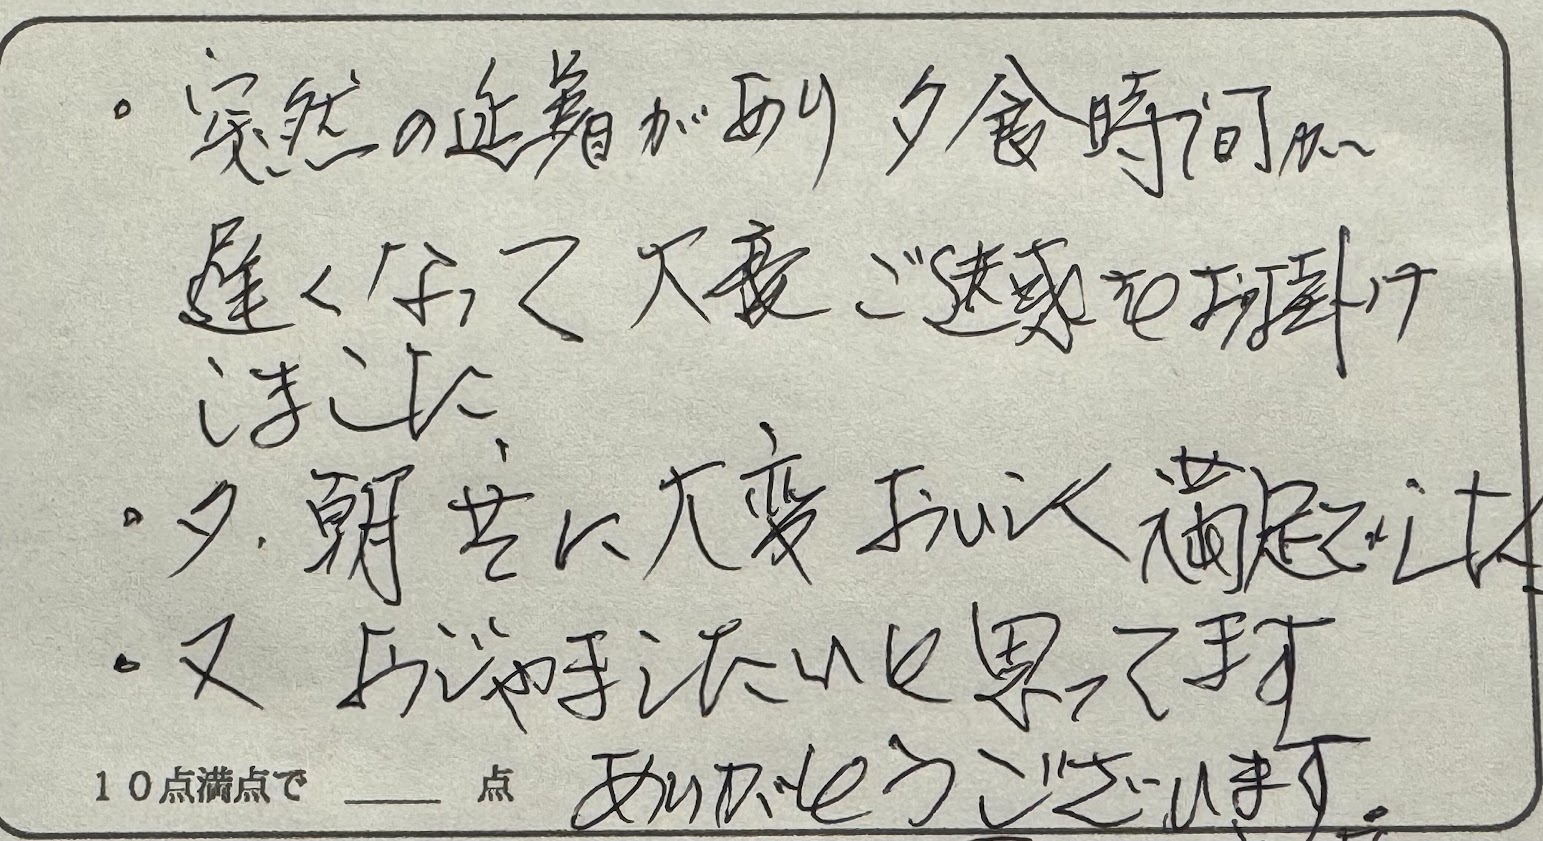 ・突然の延着があり 夕食時間が
遅くなって 大変 ご迷惑をお掛け
しました
・夕.朝 共に 大変 おいしく 満足でした
・又 おじゃましたいと 思ってます
10点満点で ____ 点 ありがとうございます。